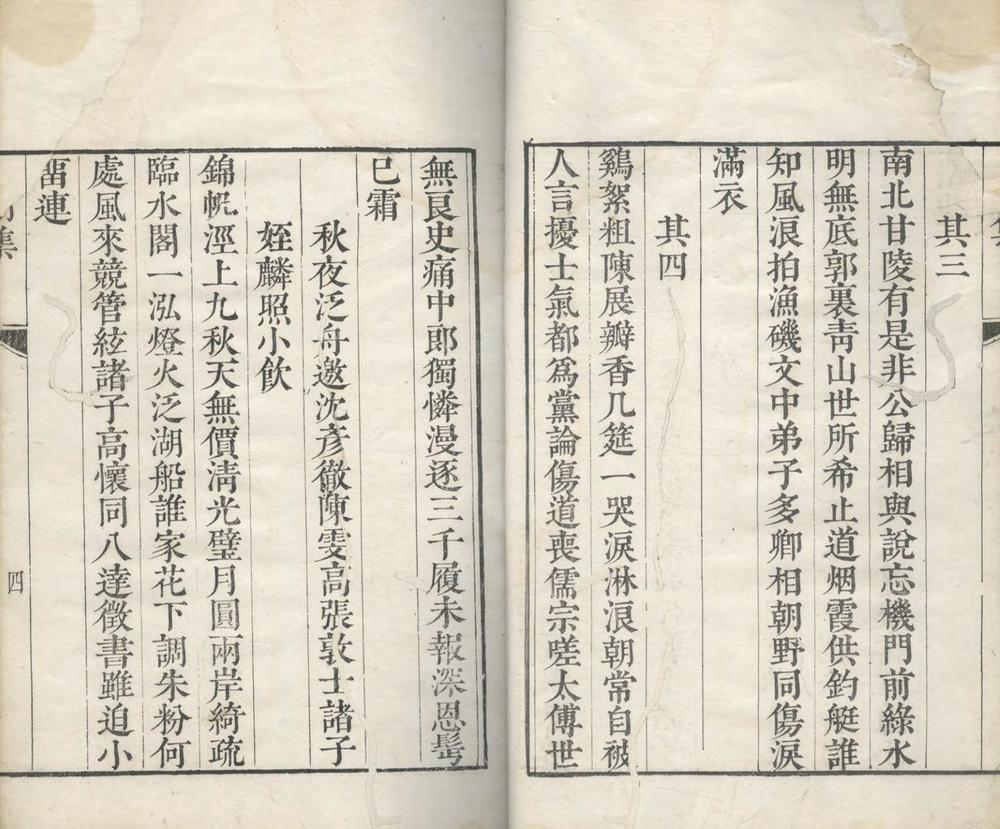 其三
南北甘陵有是非公歸相與說忘機門前綠水
明無底郭裏靑山世所希止道烟霞供釣艇誰
知風浪拍漁磯文中弟子多卿相朝野同傷淚
滿衣
其四
鷄絮粗陳展瓣香几筵一哭淚淋浪朝常自被
人言擾士氣都爲黨論傷道喪儒宗嗟太傅世
無良史痛中郎獨憐漫逐三千履未報深恩髩
巳霜
秋夜泛舟邀沈彥徹陳雯高張敦士諸子
姪麟照小飮
錦帆涇上九秋天無價淸光璧月圓兩岸綺疏
臨水閣一泓燈火泛湖船誰家花下調朱粉何
處風來競管絃諸子高懷同八達徵書雖迫小
畱連
集
四